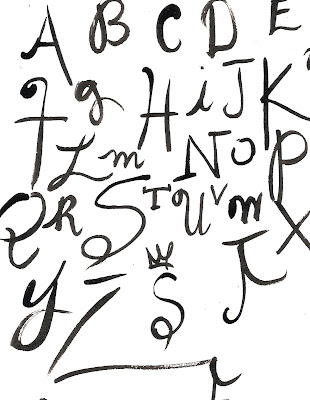 A B C D E
f g H i J K
L m N O P
Q R S T U V m X
y Z S T